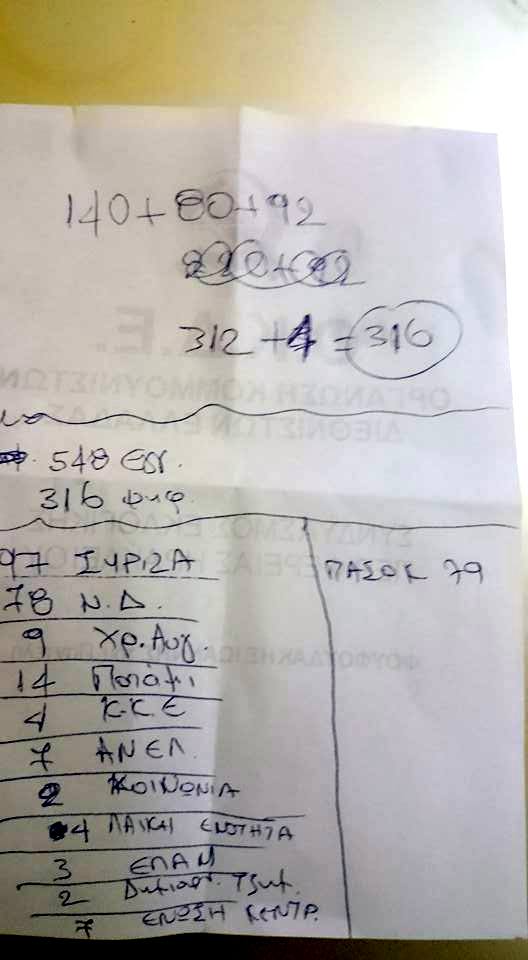 140+80+92
312+4=316
548 εγγ.
316 ψηφ.
97 ΣΥΡΙΖΑ
ΠΑΣΟΚ 79
78 Ν.Δ.
9 Χρ.Αυγ.
14 Ποτάμι
4 Κ.Κ.Ε
7 ΑΝΕΛ.
2 ΚΟΙΝΩΝΙΑ
4 ΛΑΙΚΗ ΕΝΟΤΗΤΑ
3 ΕΠΑΜ
2 Δημιουρ. Τζημ.
7 ΕΝΩΣΗ ΚΕΝΤΡ.